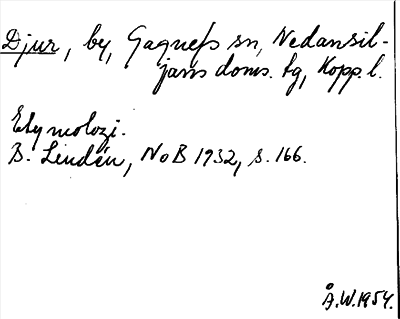 Djur, by, Gagnefs sn, Nedansil-
jans doms. tg, Kopp. l.
Etymologi.
B. Lindén, NoB 1932, s. 166.
Å.W.1954.